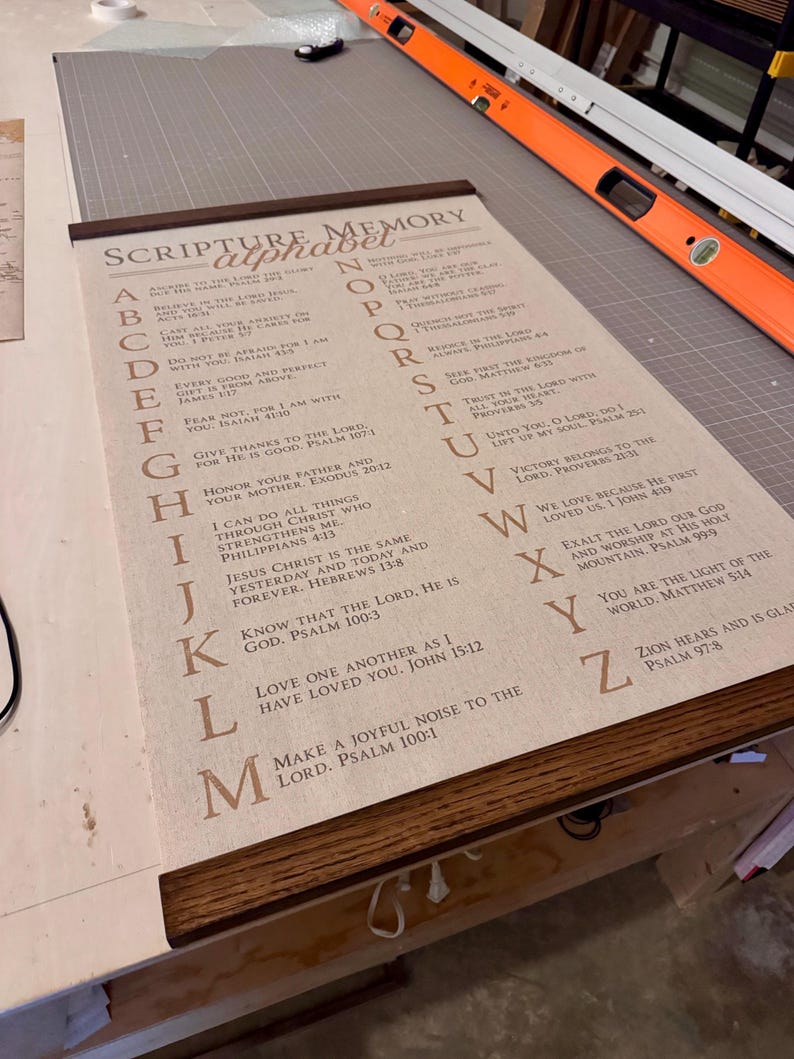 Scripture Memory
alphabet
A
Ascribe to the Lord the glory
due His name. Psalm 29:2
B
Believe in the Lord Jesus,
and you will be saved.
Acts 16:31
C
Cast all your anxiety on
Him because He cares for
you. 1 Peter 5:7
D
Do not be afraid: for I am
with you. Isaiah 43:5
E
Every good and perfect
gift is from above.
James 1:17
F
Fear not, for I am with
you. Isaiah 41:10
G
Give thanks to the Lord,
for He is good. Psalm 107:1
H
Honor your father and
your mother. Exodus 20:12
I
I can do all things
through Christ who
strengthens me.
Philippians 4:13
J
Jesus Christ is the same
yesterday and today and
forever. Hebrews 13:8
K
Know that the Lord, He is
God. Psalm 100:3
L
Love one another as I
have loved you. John 15:12
M
Make a joyful noise to the
Lord. Psalm 100:1
N
Nothing will be impossible
with God. Luke 1:37
O
O Lord, You are our
Father; we are the clay,
You are the potter.
Isaiah 64:8
P
Pray without ceasing.
1 Thessalonians 5:17
Q
Quench not the Spirit
1 Thessalonians 5:19
R
Rejoice in the Lord
always. Philippians 4:4
S
Seek first the kingdom of
God. Matthew 6:33
T
Trust in the Lord with
all your heart.
Proverbs 3:5
U
Unto You, O Lord, do I
lift up my soul. Psalm 25:1
V
Victory belongs to the
Lord. Proverbs 21:31
W
We love because He first
loved us. 1 John 4:19
X
Exalt the Lord our God
and worship at His holy
mountain. Psalm 99:9
Y
You are the light of the
world. Matthew 5:14
Z
Zion hears and is
Psalm 97:8